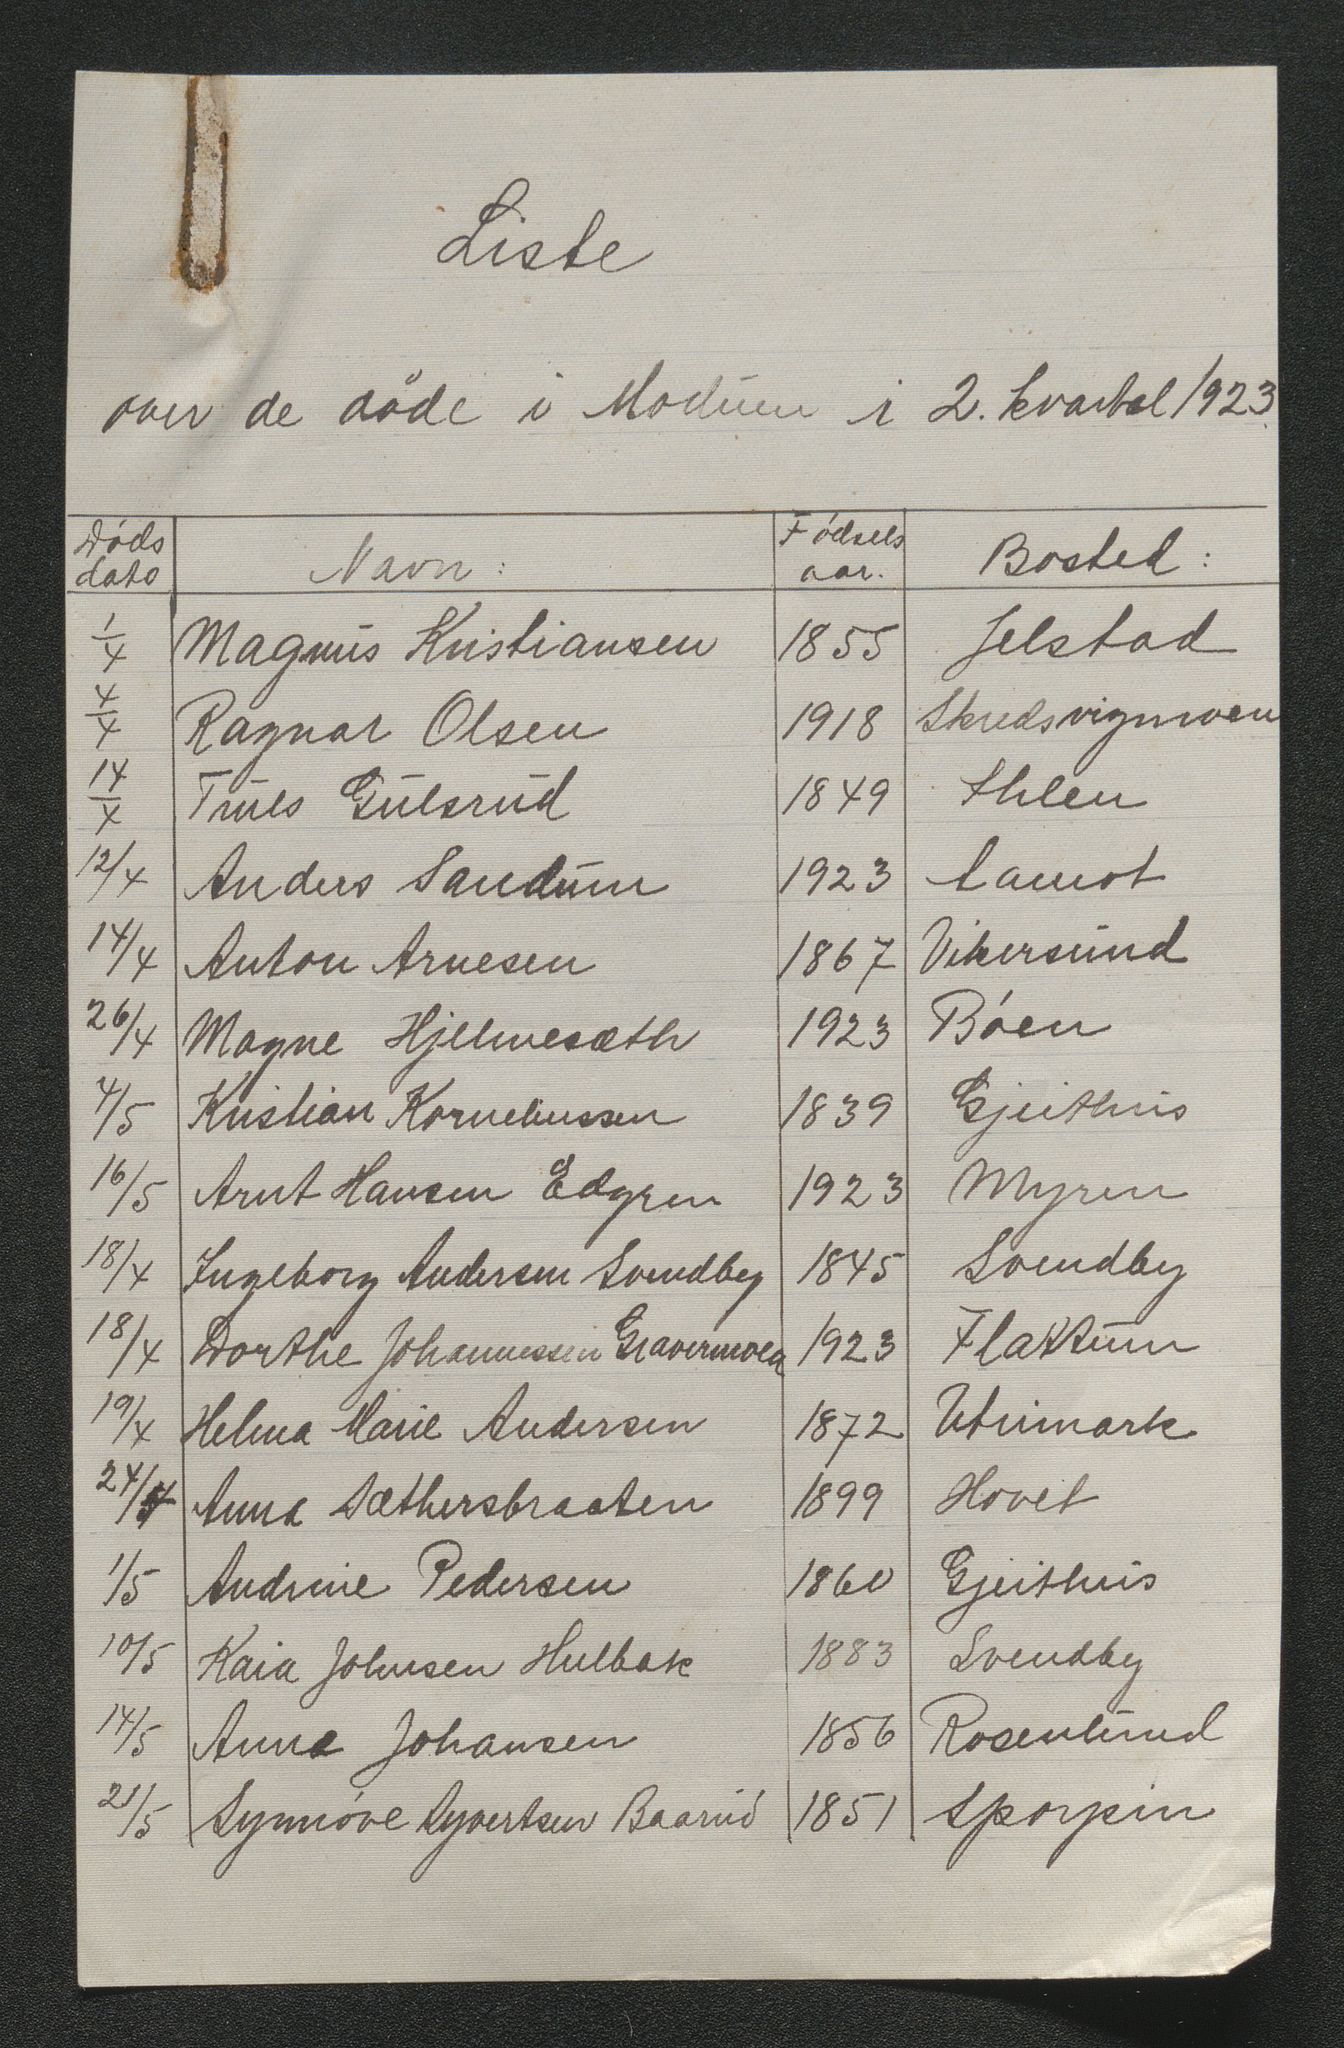 Liste
over de døde i Modum i 2. kvartal 1923.
Døds dato Navn: Fødsels aar. Bosted:
1/4 Magnus Kristiansen 1855 Jelstad
4/4 Ragnar Olsen 1918 Skredsvigmoen
14/4 Truls Gulsrud 1849 Ihlen
12/4 Anders Sandum 1923 Aamot
14/4 Anton Arnesen 1867 Vikersund
26/4 Magne Hjelmesæth 1923 Bøen
4/5 Kristian Korneliussen 1839 Gjeithus
16/5 Arnt Hansen Edgren 1923 Myren
18/4 Ingeborg Andersen Svendby 1845 Svendby
18/4 Dorthe Johannessen Gravermoen 1923 Flattum
19/4 Helma Marie Andersen 1872
24/4 Anna Sæthersbraaten 1899 Hovet
1/5 Andrine Pedersen 1860 Gjeithus
10/5 Kaia Johnsen Hulbak 1883 Svendby
14/5 Anna Johansen 1856 Rosenlund
21/5 Synnøve Syvertsen Baarud 1851